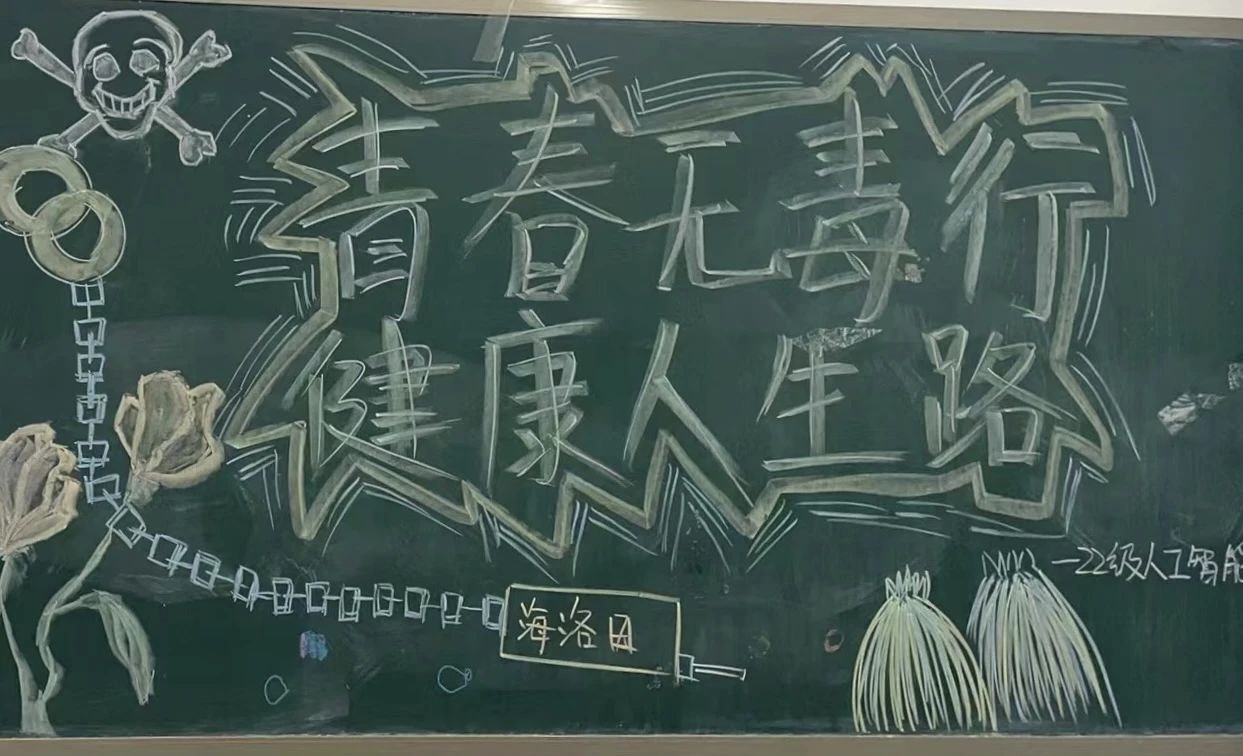 青春无毒行
健康人生路
海洛因
—22级人工智能